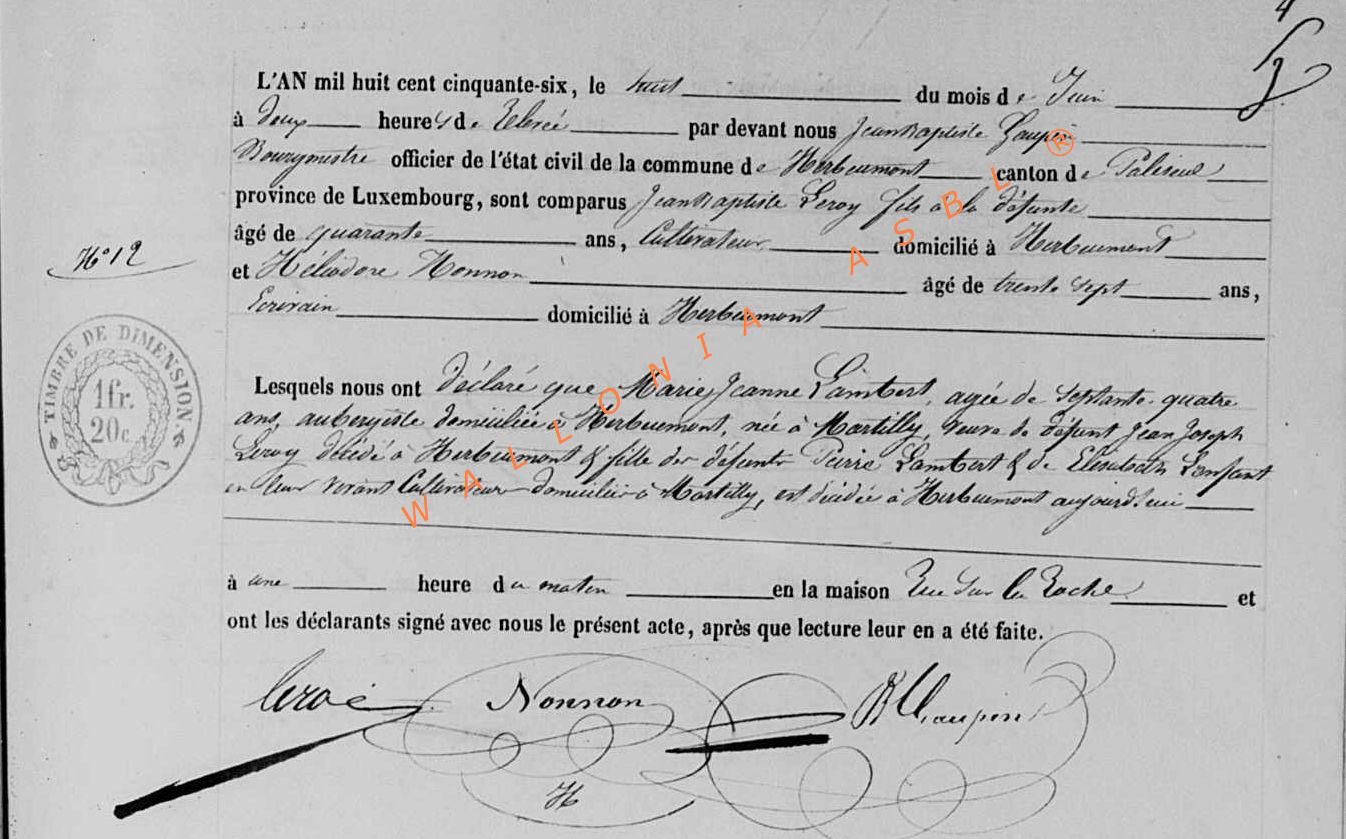 4
L'AN mil huit cent cinquante-six, le huit du mois de Juin
à Deux heures de Relevée par devant nous Jean Baptiste
Bourgmestre officier de l'état civil de la commune de Herbeumont canton de Paliseul
province de Luxembourg, sont comparus Jean Baptiste Leroy fils à la défunte
âgé de quarante ans, Cultivateur domicilié à Herbeumont
N° 12
et Héliodore Nonnon âgé de trente sept ans,
Ecrivain domicilié à Herbeumont
TIMBRE DE DIMENSION.
1fr.
20c.
Lesquels nous ont déclaré que Marie Jeanne Lambert, agée de Septante-quatre
ans, aubergiste domiciliée à Herbeumont, née à Martilly, veuve de défunt Jean Joseph
Leroy décédé à Herbeumont & fille des défunts Pierre Lambert & de Elisabeth Lenfant
en leur vivant Cultivateurs domiciliés à Martilly, est décédée à Herbeumont aujourd'hui
à une heure du matin en la maison Rue Sur la Roche et
ont les déclarants signé avec nous le présent acte, après que lecture leur en a été faite.
Leroi Nonnon
H
WALLONIA ASBL ®